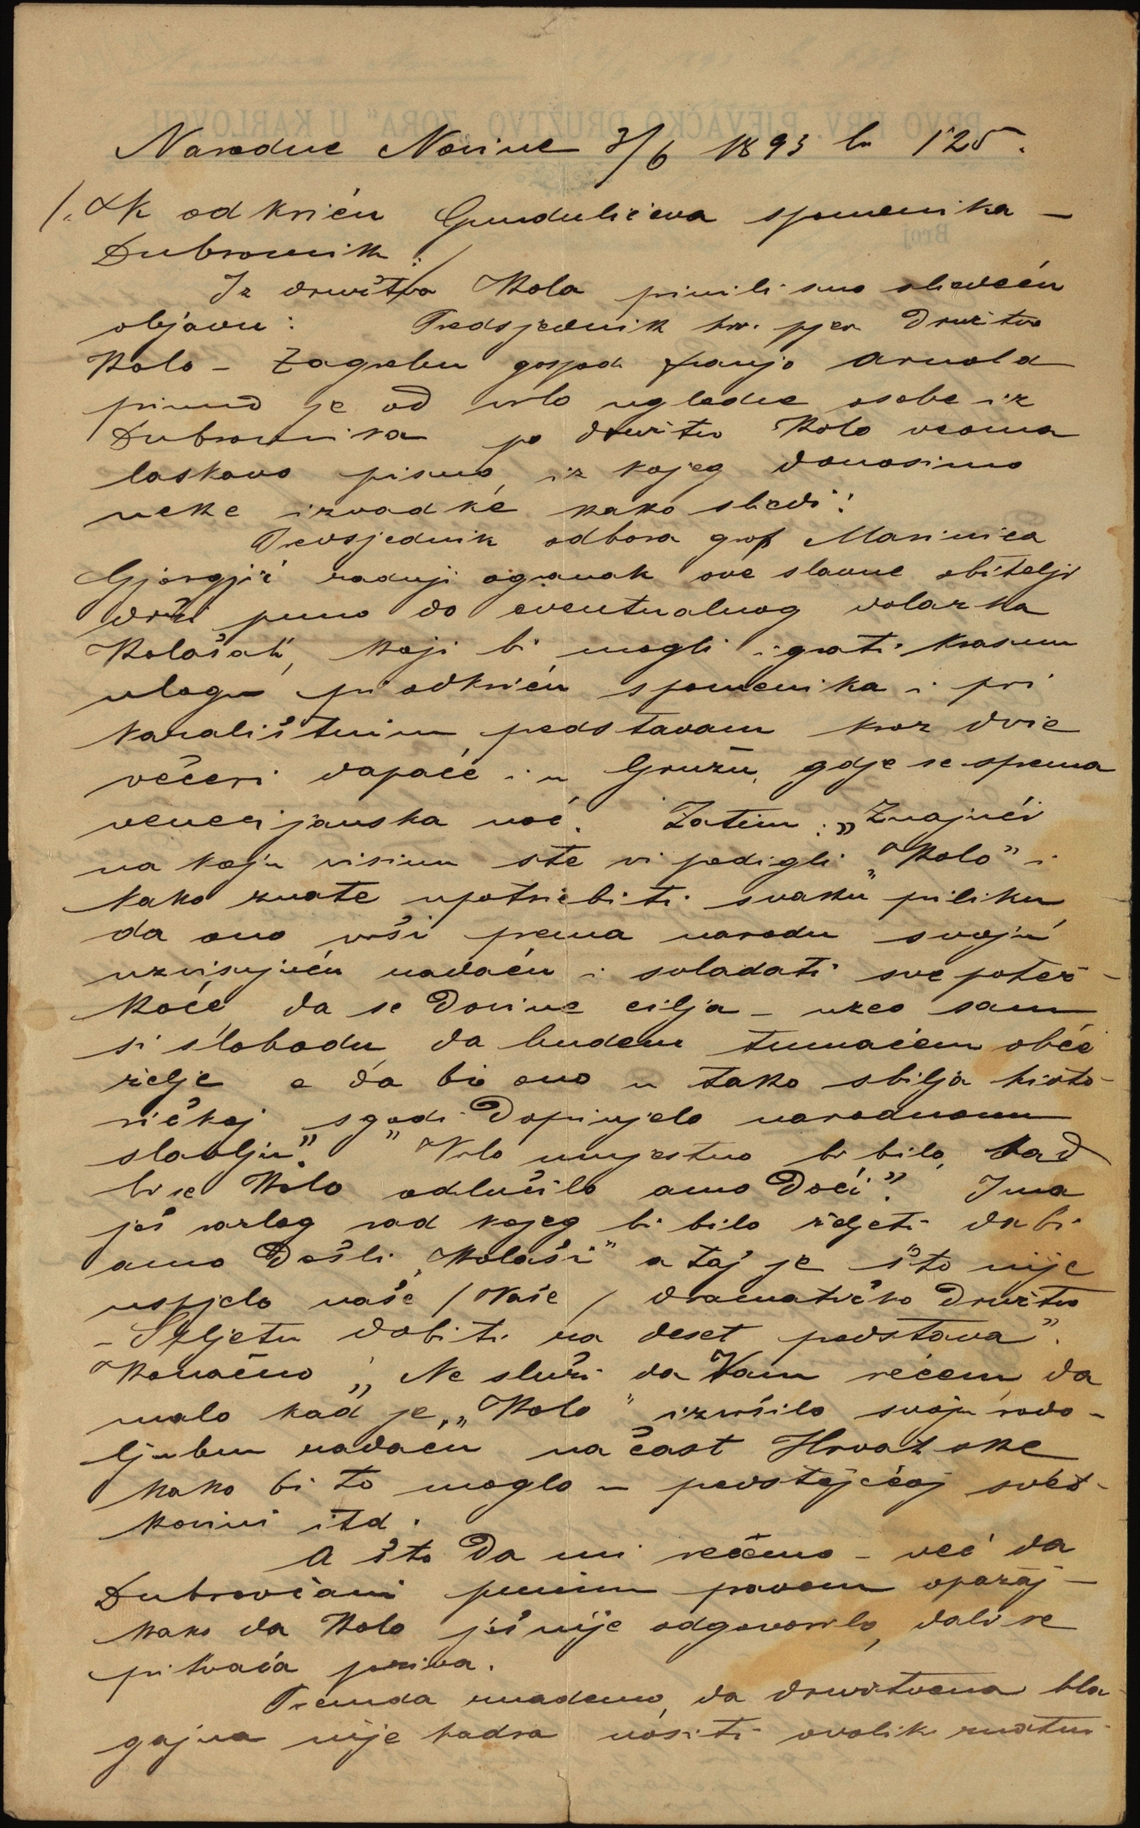 Narodne Novine 3/6 1893 br 125.
1. K odkriću Gundulićeva spomenika –
Dubrovnik:
Iz družtva Kola primili smo sliedeću
objavu: Predsjednik hrv. pjev Družtva
Kolo – Zagrebu gospod. Franjo Arnold
primio je od vrlo ugledne osobe iz
Dubrovnika po družtvo Kolo veoma
laskavo pismo, iz kojeg donosimo
neke izvadke kako sliedi:
Predsjednik odbora grof Marinica
Gjorgjić zadnji ogranak ove slavne obitelji
drži puno do eventualnog dolazka
Kolašah, koji bi mogli igrati krasnu
ulogu pri odkriću spomenika i pri
kazalištnim predstavam kroz dvie
večeri dapače i u Gružu, gdje se sprema
venecijanska noć. Zatim: „Znajući
na koju visinu ste vi podigli „Kolo" i
kako znate upotriebiti svaku priliku
da ono vrši prema narodu svoju
uzvisujuću zadaću i svladati sve poteš-
koće da se Dovine cilja – uzeo sam
si slobodu, da budem tumačem obće
želje e da bi ono u tako sbilja histo-
ričkoj sgodi Doprinjelo narodnomu
slavlju". „Vrlo umjestno bi bilo, kad
bi se Kolo odlučilo amo Doći". Ima
još razlog rad kojeg bi bilo željeti da bi
amo Došli „Kolaši" a taj je što nije
uspjelo naše /Vaše/ dramatičko Družtvo
– Spljetu dobiti na deset predstava".
Konačno „Ne služi da Vam rečem, da
malo kad je „Kolo" izvršilo svoju rodo-
ljubnu zadaću na čast Hrvatske
kako bi to moglo u predstojećoj sveč-
kovini itd.
A što Da mi rečemo – već da
Dubrovčani punim pravom opažaj-
kako da Kolo još nije odgovorilo, dali se
prihvaća poziva.
Premda znademo, da družtvena bla-
gajna nije kadra nositi ovolik znatni